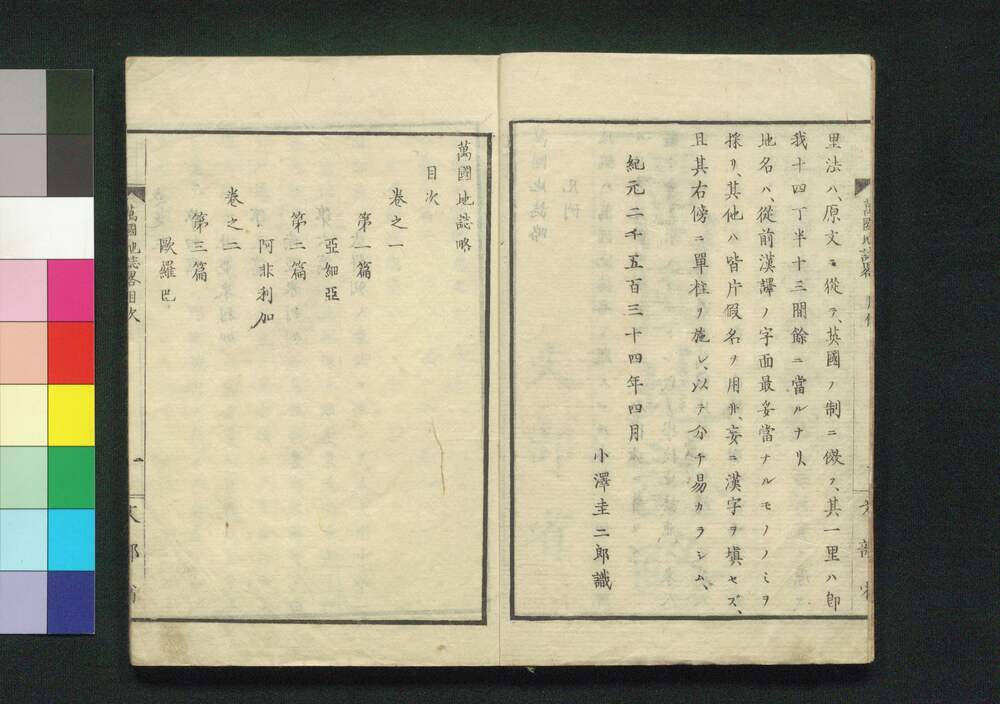 里法ハ、原文ニ從ヲ、英國ノ制ニ傚フ、其一里ハ卽
我十四丁半十三間餘ニ當ルナリ、
地名ハ、從前漢譯ノ字面最妥當ナルモノノミヲ
採リ、其他ハ皆片假名ヲ用井、妄ニ漢字ヲ塡セズ、
且其右傍ニ單柱ヲ施シ、以テ分チ易カラシム、
紀元二千五百三十四年四月
小澤圭二郎識
萬國地誌略
目次
卷之一
第一篇
亞細亞
第二篇
阿非利加
卷之二
第三篇
歐羅巴
萬國地誌畧目次
一
文部省